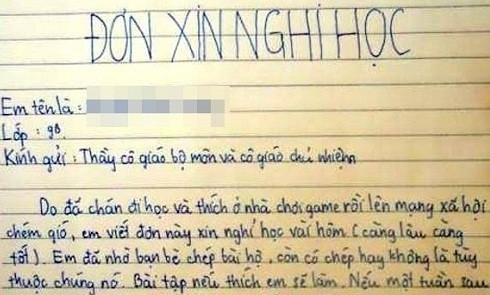 ĐƠN XIN NGHỈ HỌC
Em tên là :
Lớp : 9B
Kính gửi : Thầy cô giáo bộ môn và cô giáo chủ nhiệm
Do đã chán đi học và thích ở nhà chơi game rồi lên mạng xã hội
chém gió, em viết đơn này xin nghỉ học vài hôm (càng lâu càng
tốt). Em đã nhờ bạn bè chép bài hộ, còn có chép hay không là tùy
thuộc chúng nó. Bài tập nếu thích em sẽ làm. Nếu một tuần sau